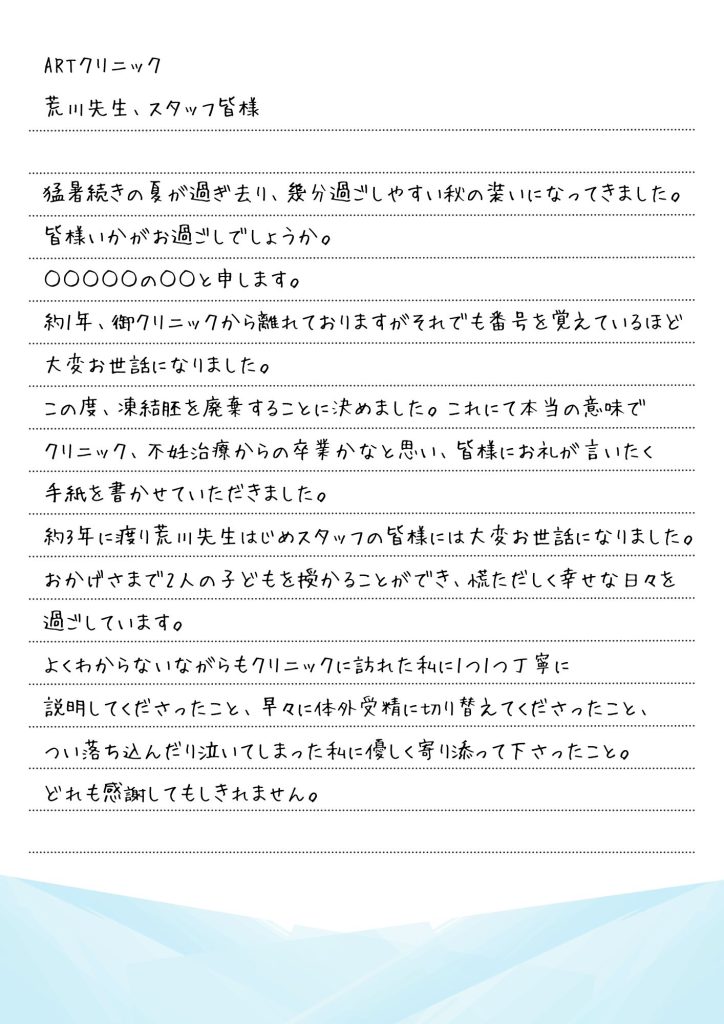 ARTクリニック
荒川先生、スタッフ皆様
猛暑続きの夏が過ぎ去り、幾分過ごしやすい秋の装いになってきました。
皆様いかがお過ごしでしょうか。
〇〇〇〇〇の〇〇と申します。
約1年、御クリニックから離れておりますがそれでも番号を覚えているほど
大変お世話になりました。
この度、凍結胚を廃棄することに決めました。これにて本当の意味で
クリニック、不妊治療からの卒業かなと思い、皆様にお礼が言いたく
手紙を書かせていただきました。
約3年に渡り荒川先生はじめスタッフの皆様には大変お世話になりました。
おかげさまで2人の子どもを授かることができ、慌ただしく幸せな日々を
過ごしています。
よくわからないながらもクリニックに訪れた私に1つ1つ丁寧に
説明してくださったこと、早々に体外受精に切り替えてくださったこと、
つい落ち込んだり泣いてしまった私に優しく寄り添って下さったこと。
どれも感謝してもしきれません。